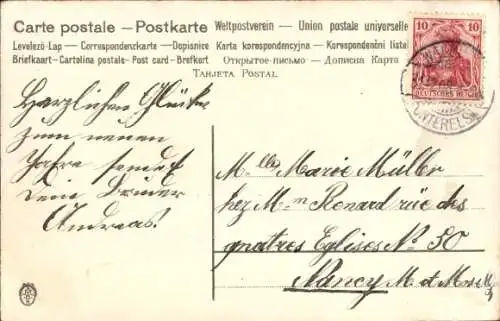 Carte postale — Postkarte Weltpostverein — Union postale universelle
Levelező-Lap — Correspondenzkarte — Dopisnice Karta korespondencyjna — Korespondenční listek
Briefkaart — Cartolina postale — Post card — Brefkort Открытое письмо — Дописна Карта
TARJETA POSTAL
10 10
DEUTSCHES REICH
UNTERELSASS
Herzlichen Glück
zum neuen
Jahre sendet
Dein Bruder
Andreas.
Mlle Marie Müller
chez Mm Renard rüe des
quatres Eglises No 50
Nancy M et Mos